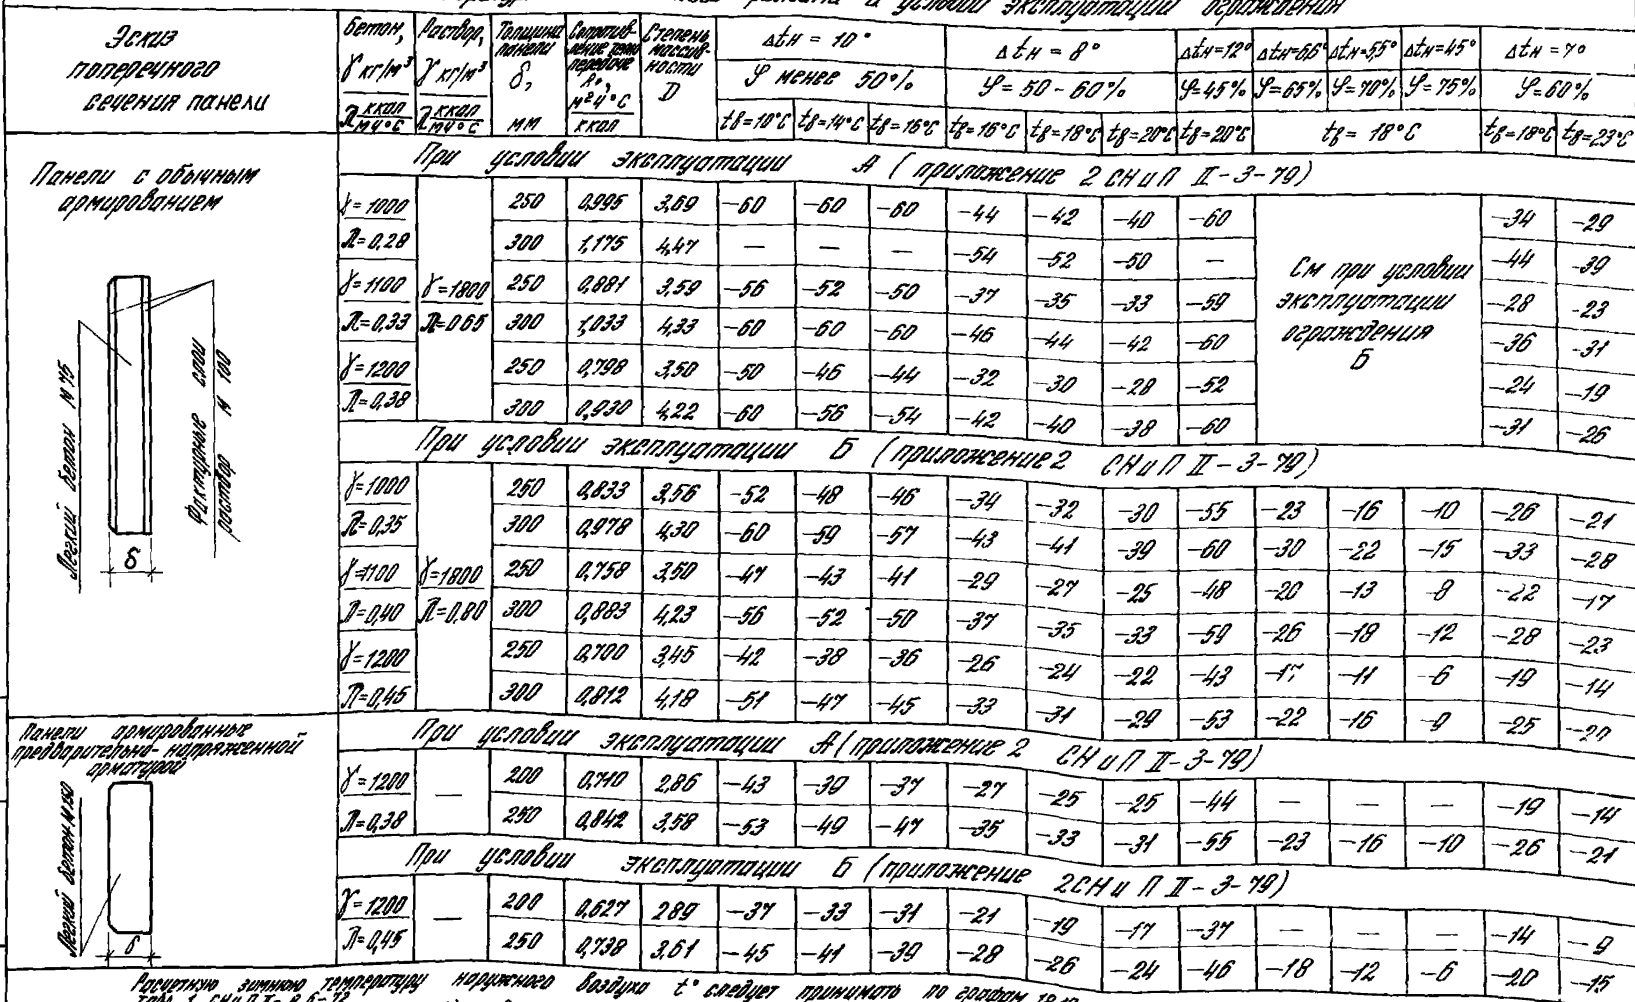 температур режима и условий эксплуатации ограждения
Эскиз поперечного сечения панели | Бетон, γ кг/м³ / λ ккал/мч°С | Раствор, γ кг/м³ / λ ккал/мч°С | Толщина панели δ, мм | Сопротивление теплопередаче R₀, м²ч°С/ккал | Степень массивности D | Δtн = 10° | Δtн = 8° | Δtн=12° | Δtн=6,5° | Δtн=5,5° | Δtн=4,5° | Δtн = 7°
φ менее 50% | φ = 50-60% | φ=45% | φ=65% | φ=70% | φ=75% | φ=60%
tв=10°С | tв=14°С | tв=16°С | tв=16°С | tв=18°С | tв=20°С | tв=20°С | tв = 18°С | tв=18°С | tв=23°С
Панели с обычным армированием
Легкий бетон М75
Фактурные слои раствор М 100
δ
При условии эксплуатации А (приложение 2 СНиП II-3-79)
γ=1000 | γ=1800 | 250 | 0,995 | 3,69 | -60 | -60 | -60 | -44 | -42 | -40 | -60 | См при условии эксплуатации ограждения Б | -34 | -29
λ=0,28 | λ=0,65 | 300 | 1,175 | 4,47 | — | — | — | -54 | -52 | -50 | — | -44 | -39
γ=1100 | 250 | 0,881 | 3,59 | -56 | -52 | -50 | -37 | -35 | -33 | -59 | -28 | -23
λ=0,33 | 300 | 1,033 | 4,33 | -60 | -60 | -60 | -46 | -44 | -42 | -60 | -36 | -31
γ=1200 | 250 | 0,798 | 3,50 | -50 | -46 | -44 | -32 | -30 | -28 | -52 | -24 | -19
λ=0,38 | 300 | 0,930 | 4,22 | -60 | -56 | -54 | -42 | -40 | -38 | -60 | -31 | -26
При условии эксплуатации Б (приложение 2 СНиП II-3-79)
γ=1000 | γ=1800 | 250 | 0,833 | 3,56 | -52 | -48 | -46 | -34 | -32 | -30 | -55 | -23 | -16 | -10 | -26 | -21
λ=0,35 | λ=0,80 | 300 | 0,978 | 4,30 | -60 | -59 | -57 | -43 | -41 | -39 | -60 | -30 | -22 | -15 | -33 | -28
γ=1100 | 250 | 0,758 | 3,50 | -47 | -43 | -41 | -29 | -27 | -25 | -48 | -20 | -13 | -8 | -22 | -17
λ=0,40 | 300 | 0,883 | 4,23 | -56 | -52 | -50 | -37 | -35 | -33 | -59 | -26 | -18 | -12 | -28 | -23
γ=1200 | 250 | 0,700 | 3,45 | -42 | -38 | -36 | -26 | -24 | -22 | -43 | -17 | -11 | -6 | -19 | -14
λ=0,45 | 300 | 0,812 | 4,18 | -51 | -47 | -45 | -33 | -31 | -29 | -53 | -22 | -16 | -9 | -25 | -20
Панели армированные предварительно-напряженной арматурой
Легкий бетон М150
δ
При условии эксплуатации А (приложение 2 СНиП II-3-79)
γ=1200 | — | 200 | 0,710 | 2,86 | -43 | -39 | -37 | -27 | -25 | -25 | -44 | — | — | — | -19 | -14
λ=0,38 | 250 | 0,842 | 3,58 | -53 | -49 | -47 | -35 | -33 | -31 | -55 | -23 | -16 | -10 | -26 | -21
При условии эксплуатации Б (приложение 2 СНиП II-3-79)
γ=1200 | — | 200 | 0,627 | 2,89 | -37 | -33 | -31 | -21 | -19 | -17 | -37 | — | — | — | -14 | -9
λ=0,45 | 250 | 0,738 | 3,61 | -45 | -41 | -39 | -28 | -26 | -24 | -46 | -18 | -12 | -6 | -20 | -15
Расчетную зимнюю температуру наружного воздуха t° следует принимать по графам